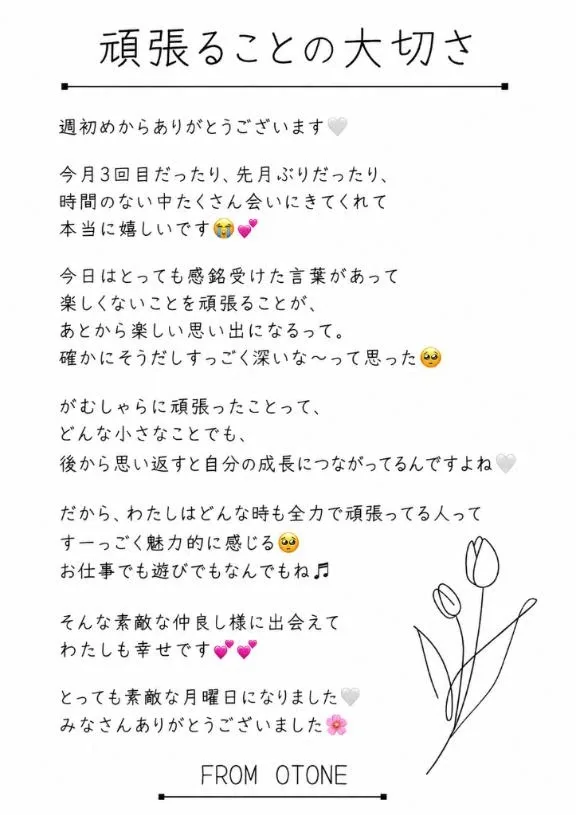 頑張ることの大切さ
週初めからありがとうございます🤍
今月3回目だったり、先月ぶりだったり、
時間のない中たくさん会いにきてくれて
本当に嬉しいです😭💕
今日はとっても感銘受けた言葉があって
楽しくないことを頑張ることが、
あとから楽しい思い出になるって。
確かにそうだしすっごく深いな〜って思った🥺
がむしゃらに頑張ったことって、
どんな小さなことでも、
後から思い返すと自分の成長につながってるんですよね🤍
だから、わたしはどんな時も全力で頑張ってる人って
すーっごく魅力的に感じる🥺
お仕事でも遊びでもなんでもね♬
そんな素敵な仲良し様に出会えて
わたしも幸せです💕💕
とっても素敵な月曜日になりました🤍
みなさんありがとうございました🌸
FROM OTONE